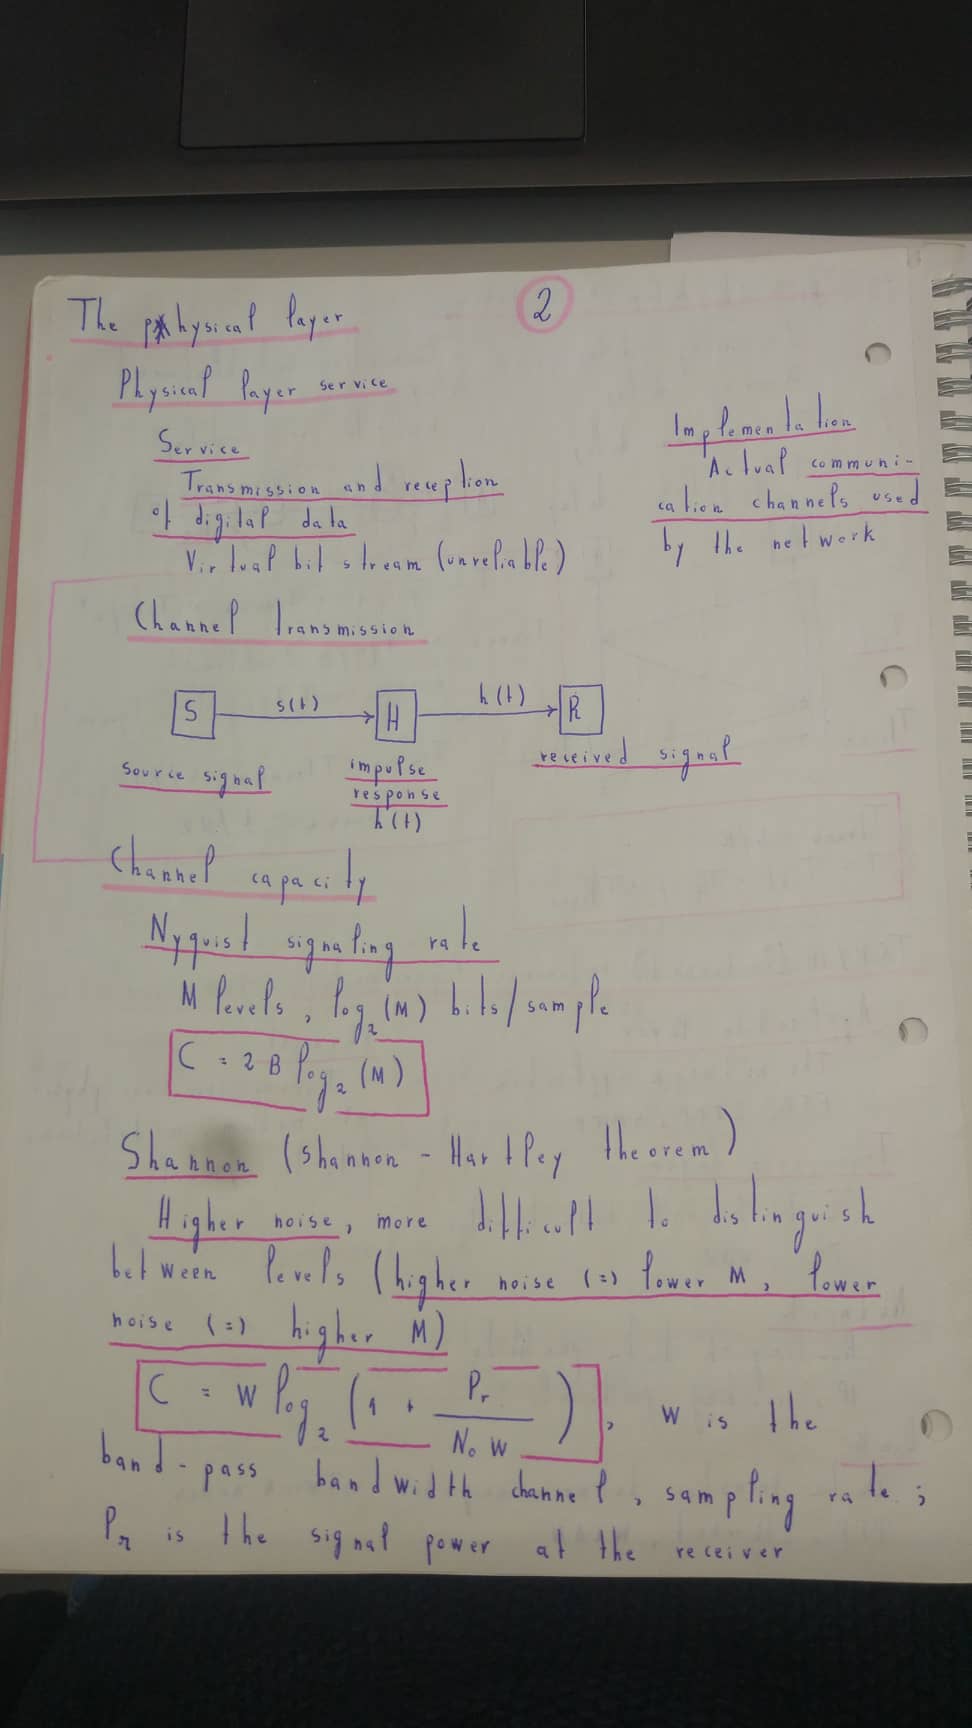 The physical layer
2
Physical layer service
Service
Transmission and reception
of digital data
Virtual bit stream (unreliable)
Implementation
Actual communi-
cation channels used
by the network
Channel transmission
S
s(t)
H
h(t)
R
source signal
impulse
response
h(t)
received signal
Channel capacity
Nyquist signaling rate
M levels, log₂(M) bits/sample
C = 2B log₂(M)
Shannon (Shannon - Hartley theorem)
Higher noise, more difficult to distinguish
between levels (higher noise (=) lower M, lower
noise (=) higher M)
C = W log₂(1 + Pr / N₀W), W is the
band-pass bandwidth channel, sampling rate;
Pr is the signal power at the receiver